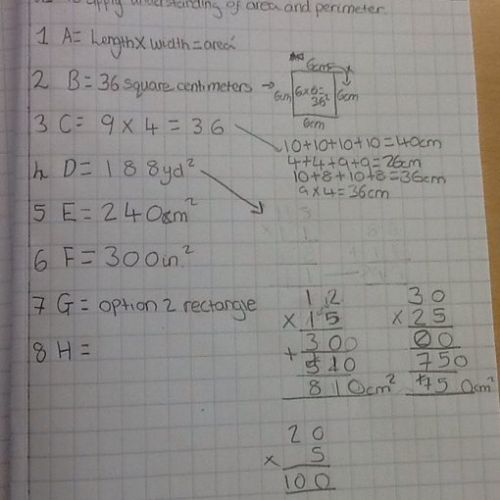 to apply understanding of area and perimeter
1 A = Length x width = area
2 B = 36 square centimeters →
6cm
6cm
6x6=
36²
6cm
6cm
3 C = 9 x 4 = 36
10+10+10+10=40cm
4+4+9+9=26cm
10+8+10+8=36cm
9x4=36cm
4 D = 188yd²
5 E = 240cm²
6 F = 300in²
7 G = option 2 rectangle
8 H =
12
x 15
300
+ 510
810cm²
30
x 25
00
750
750cm²
20
x 5
100